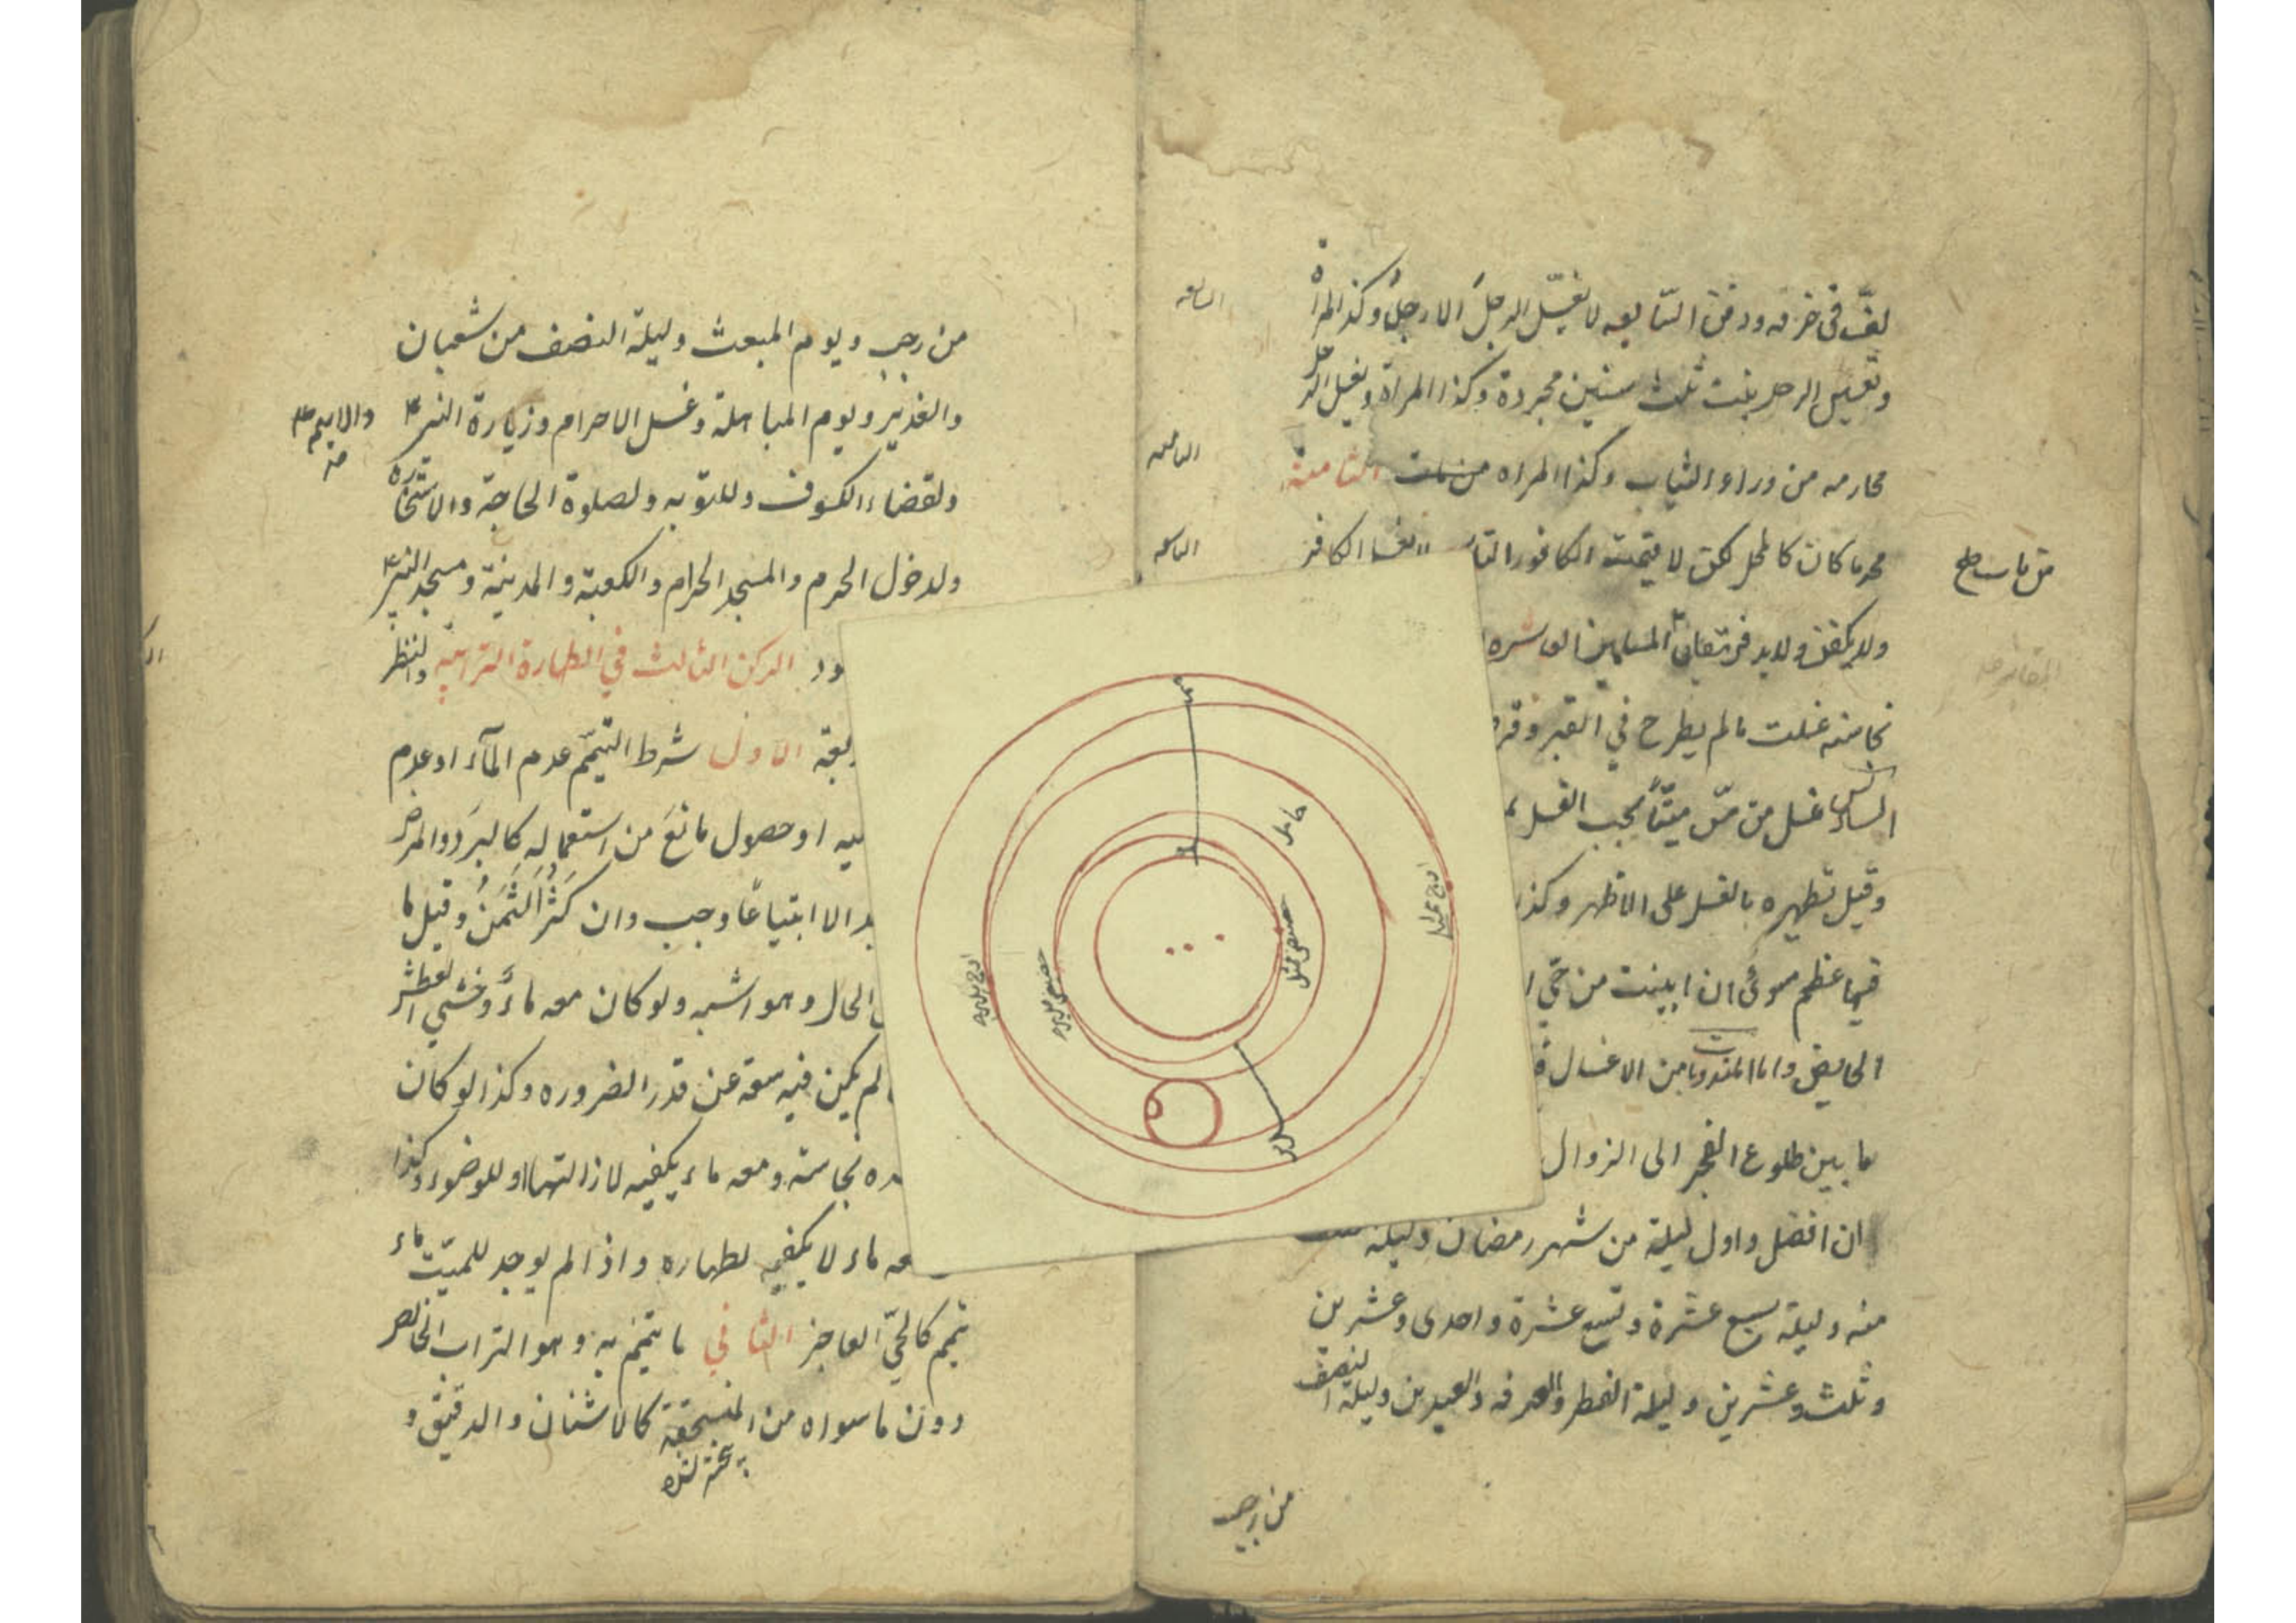 لفّ في خرقه ودفن السّابعه لا يغسّل الرجلَ الا رجلٌ وكذا المراة
السابعه
وتغسيل الرجل بنت ثلث سنين مجردة وكذا المراة ويغسل الرجل
محارمه من وراء الثياب وكذا المراه من مات الثامنة
الثامنه
محرما كان كالمحل لكن لا يقرب الكافور التا لا يغسل الكافر
التاسعه
من مات صح
ولا يكفن ولا يدفن في مقابر المسلمين العاشره
المقابر صل
نجاسته غسلت ما لم يطرح في القبر وقر
السادس غسل من مسّ ميتاً يجب الغسل
وقبل تطهيره بالغسل على الاظهر وكذا
فيها عظم سواء ان ابينت من حي ا
الحايض واما المندوبات من الاغسال ف
ما بين طلوع الفجر الى الزوال
ان افضل واول ليلة من شهر رمضان وليلة
منه وليلة سبع عشرة وتسع عشرة واحدى وعشرين
وثلث وعشرين وليلة الفطر والعرفه والعيدين وليلة النصف
من رجب
من رجب ويوم المبعث وليلة النصف من شعبان
والغدير ويوم المباهلة وغسل الاحرام وزيارة النبي
والايمه
ولقضاء الكسوف وللتوبه ولصلوة الحاجة والاستخارة
ولدخول الحرم والمسجد الحرام والكعبة والمدينة ومسجد النبي
ود الركن الثالث في الطهارة الترابية والنظر
بعة الاول شرط التيمّم عدم المآء او عدم
ليه او حصول مانع من استعماله كالبرد والمرض
جد الا ابتياعًا وجب وان كثر الثمن وقيل ما
الحال وهو اشبه ولو كان معه ماء وخشي العطش
لم يكن فيه سعة عن قدر الضروره وكذا لو كان
ده نجاسة ومعه ماء يكفيه لازالتها او للوضوء وكذا
معه ماء لا يكفيه لطهاره واذا لم يوجد للميت ماء
تيمم كالحيّ العاجز الثاني ما يتيمّم به وهو التراب الخالص
دون ما سواه من المنسحقة كالاشنان والدقيق و
حامل
اوج ممثل
حضيض ممثل
اوج مدير
حضيض مدير